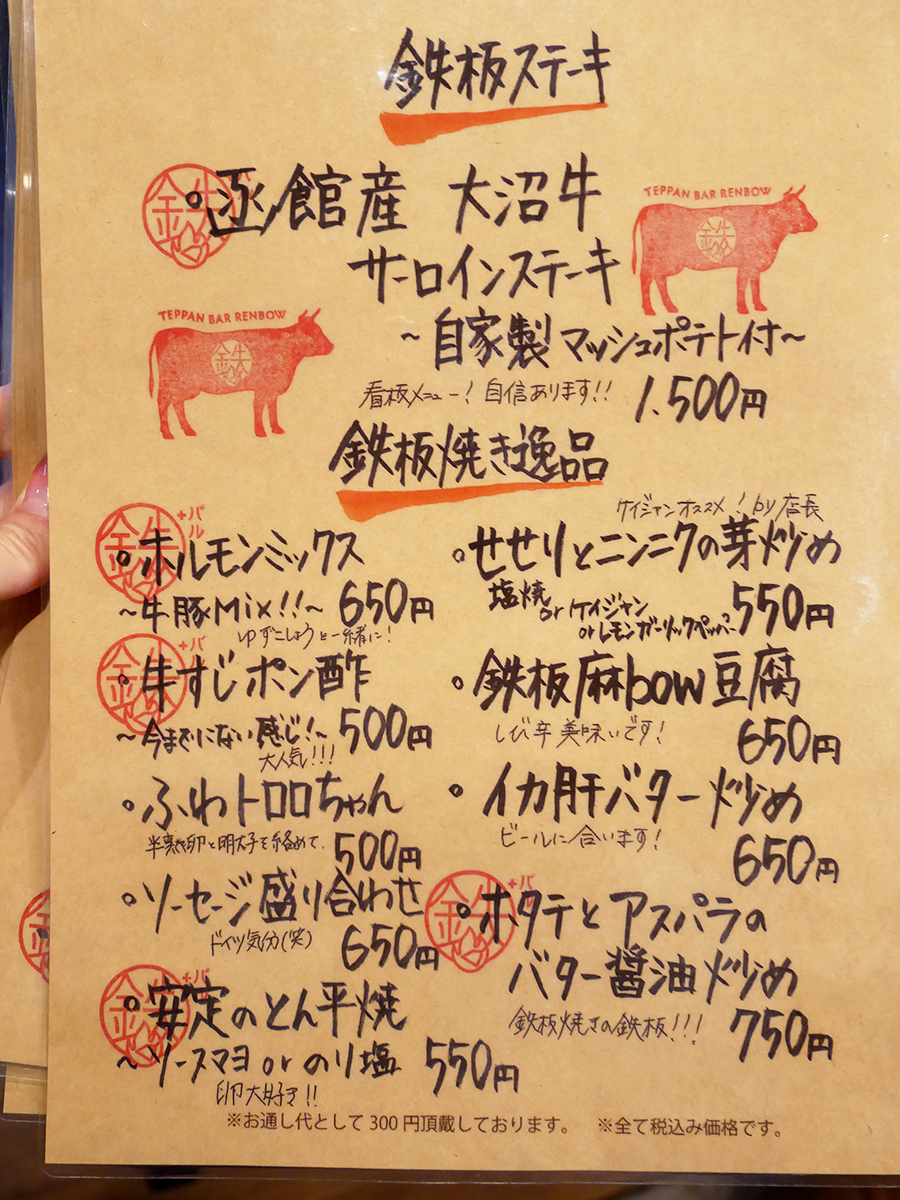 鉄板ステーキ
函館産 大沼牛
サーロインステーキ
TEPPAN BAR RENBOW
TEPPAN BAR RENBOW
~自家製マッシュポテト付~
看板メニュー!自信あります!! 1,500円
鉄板焼き逸品
赤ルモンミックス
~牛豚Mix!!~ 650円
ゆずこしょうと一緒に!
牛すじポン酢
~今までにない感じ!~ 500円
大人気!!!
ふわトロロちゃん
半熟卵と明太子を絡めて. 500円
ソーセージ盛り合わせ
ドイツ気分(笑) 650円
安定のとん平焼
~ソースマヨorのり塩 550円
卵大好き!!
ケイジャンオススメ!by店長
せせりとニンニクの芽炒め
塩焼 550円
orケイジャン
orレモンガーリックペッパー
鉄板麻bow豆腐
しび辛美味いです! 650円
イカ肝バター炒め
ビールに合います! 650円
ホタテとアスパラの
バター醤油炒め
鉄板焼きの鉄板!!! 750円
※お通し代として300円頂戴しております。 ※全て税込み価格です。